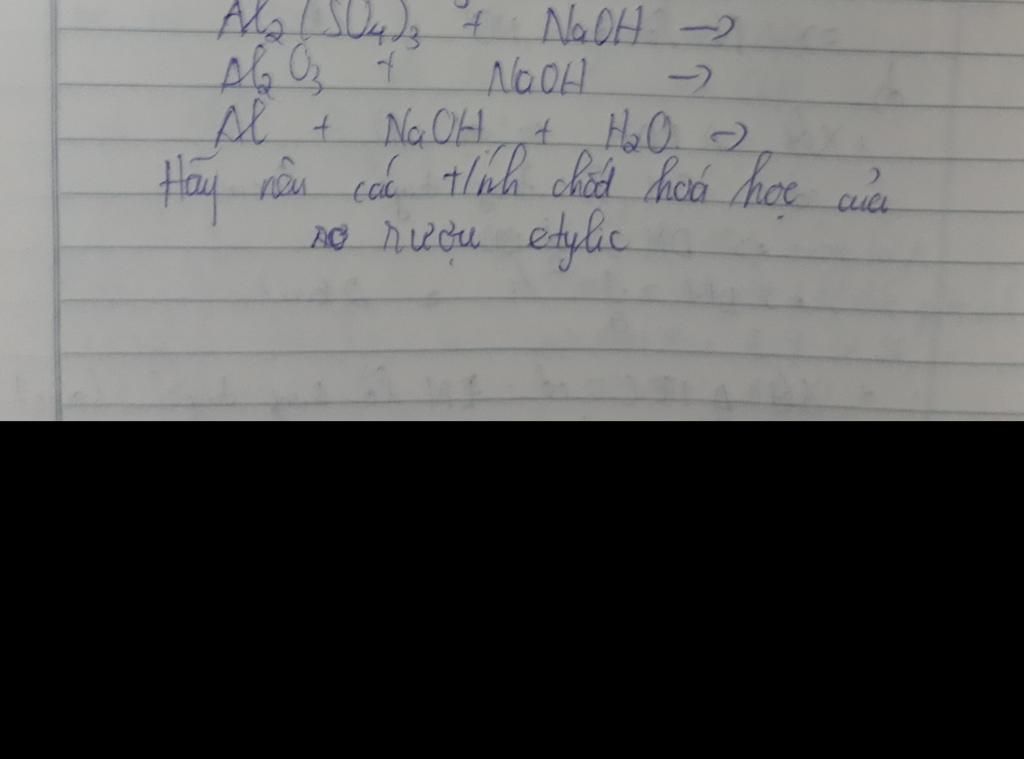 Al₂(SO₄)₃ + NaOH →
Al₂O₃ + NaOH →
Al + NaOH + H₂O →
Hãy nêu các tính chất hoá học của
rượu etylic